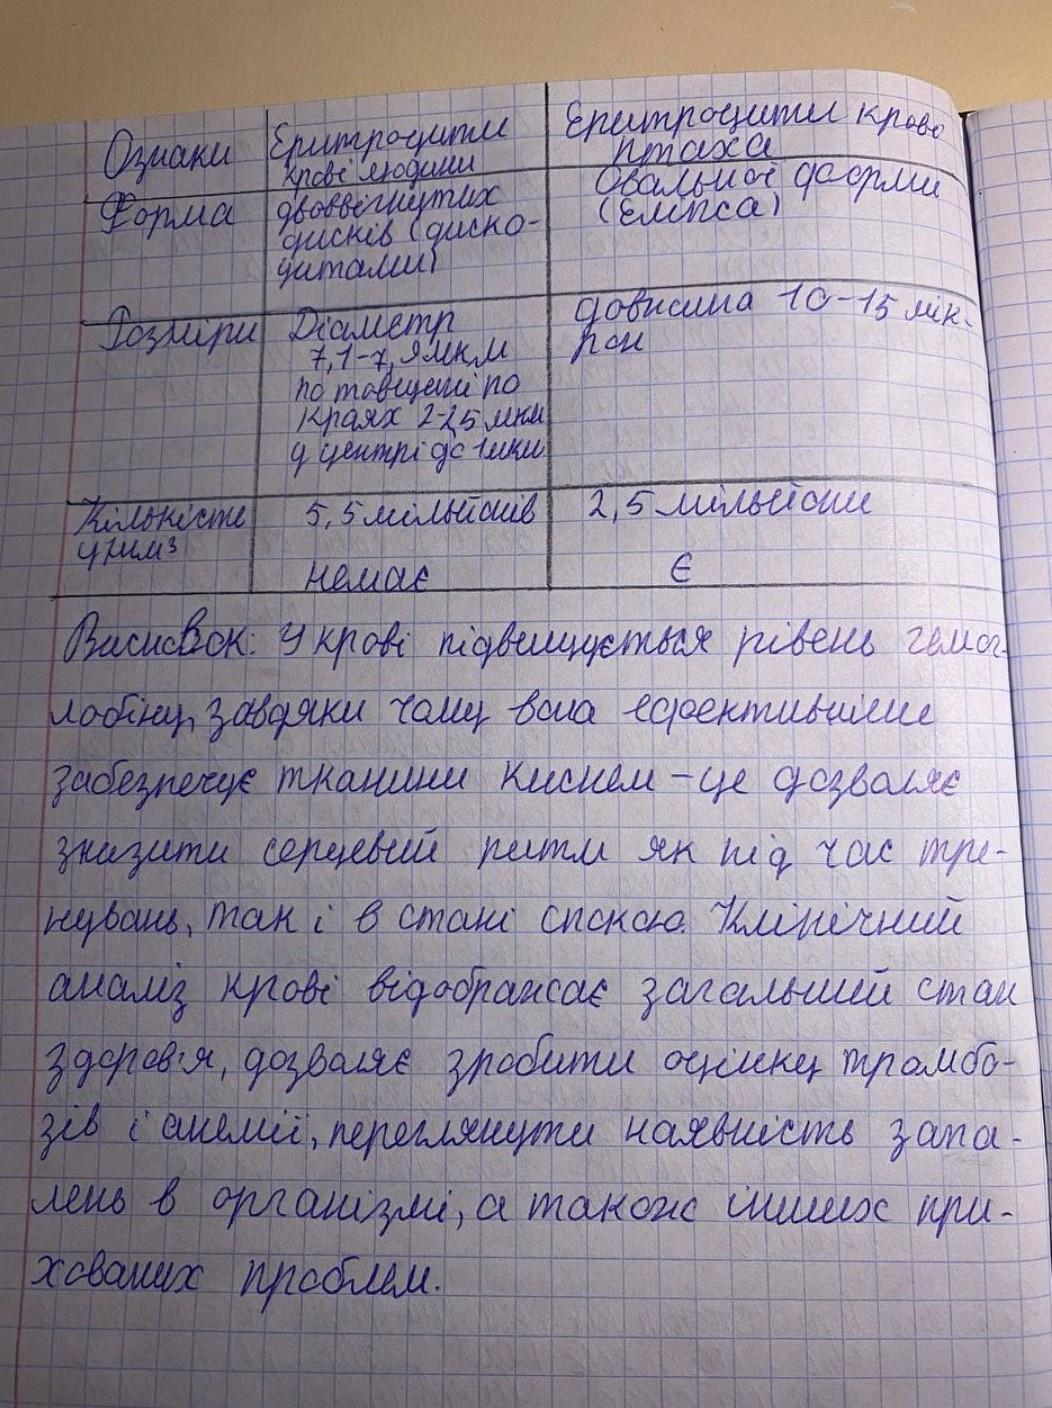 Ознаки Еритроцити Еритроцити крові
крові людини птаха
Форма двоввігнутих Овальної форми
дисків (диско- (Еліпса)
цитами)
Розміри Діаметр довжина 10-15 мік-
7,1-7,9мкм рон
по товщені по
краях 2-2,5 мкм
у центрі до 1мкм
Кількість 5,5 мільйонів 2,5 мільйони
у 1мм³
немає Є
Висновок: У крові підвищується рівень гемог-
лобіну, завдяки чому вона ефективніше
забезпечує тканини киснем – це дозволяє
знизити серцевий ритм як під час тре-
нувань, так і в стані спокою. Клінічний
аналіз крові відображає загальний стан
здоров'я, дозволяє зробити оцінку тромбо-
зів і анемії, переглянути наявність запа-
лень в організмі, а також інших при-
хованих проблем.